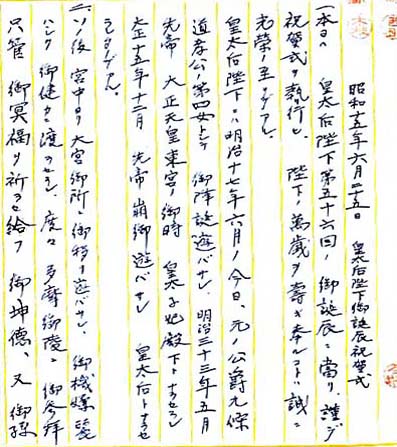 昭和十五年六月二十五日　皇太后陛下御誕辰祝賀式
一、本日ハ　皇太后陛下第五十六回ノ御誕辰ニ當リ、謹ンデ
祝賀式ヲ執行シ、陛下ノ萬歳ヲ壽ギ奉ルコトハ誠ニ
光榮ノ至リデアル。
皇太后陛下ニハ明治十七年六月ノ今日、元ノ公爵九條
道孝公ノ第四女トシテ　御降誕遊バサレ、明治三十三年五月
先帝　大正天皇東宮ノ御時　皇太子妃殿下トナラセラレ
大正十五年十二月　先帝　崩御遊バサレ　皇太后トナラセ
ラレタ
二、ソノ後　宮中ヨリ大宮御所ニ御移リ遊バサレ、御機嫌麗
ハシク　御健カニ渡ラセラレ、度々　多摩御陵ニ　御参拝
只管　御冥福ヲ祈ラセ給フ　御坤徳、又　御孫